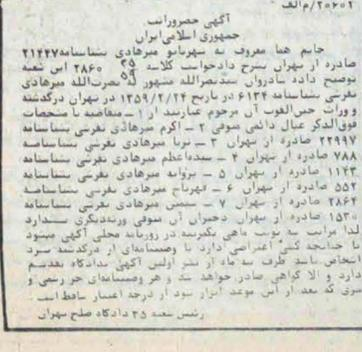 ۲۰۶۰۲/م‌الف
آگهی حصروراثت
جمهوری اسلامی ایران
خانم هما معروف به شهربانو میرهادی بشناسنامه ۲۱۴۴۷
صادره از تهران بشرح دادخواست کلاسه ۲۸۶۰ این شعبه
توضیح داده شادروان سیدنصرالله مشهور به نصرت‌الله میرهادی
تفرشی بشناسنامه ۶۱۲۴ در تاریخ ۱۳۵۹/۲/۲۴ در تهران درگذشته
و وراث حین‌الفوت آن مرحوم عبارتند از ۱ـ متقاضیه با مشخصات
فوق‌الذکر عیال دائمی متوفی ۲ـ اکرم میرهادی تفرشی بشناسنامه
۲۲۹۹۷ صادره از تهران ۳ـ ثریا میرهادی تفرشی بشناسنامه
۷۸۸ صادره از تهران ۴ـ سیده‌اعظم میرهادی تفرشی بشناسنامه
۱۱۴۳ صادره از تهران ۵ـ پروانه میرهادی تفرشی بشناسنامه
۵۵۲ صادره از تهران ۶ـ میرهادی تفرشی بشناسنامه
۲۸۶۴ صادره از تهران ۷ـ سیمین میرهادی تفرشی بشناسنامه
۱۵۳۰ صادره از تهران دختران آن متوفی ورثه‌دیگری ندارد
لذا مراتب سه نوبت ماهی یکمرتبه در روزنامه محلی آگهی میشود
تا چنانچه کسی اعتراضی دارد یا وصیتنامه‌ای از درگذشته نزد
اشخاص باشد ظرف سه ماه از نشر اولین آگهی بدادگاه تقدیم
دارد و الا گواهی صادر خواهد شد و هر وصیتنامه‌ای جز رسمی و
سری که بعد از این موعد ابراز شود از درجه اعتبار ساقط است.
رئیس شعبه ۲۵ دادگاه صلح تهران